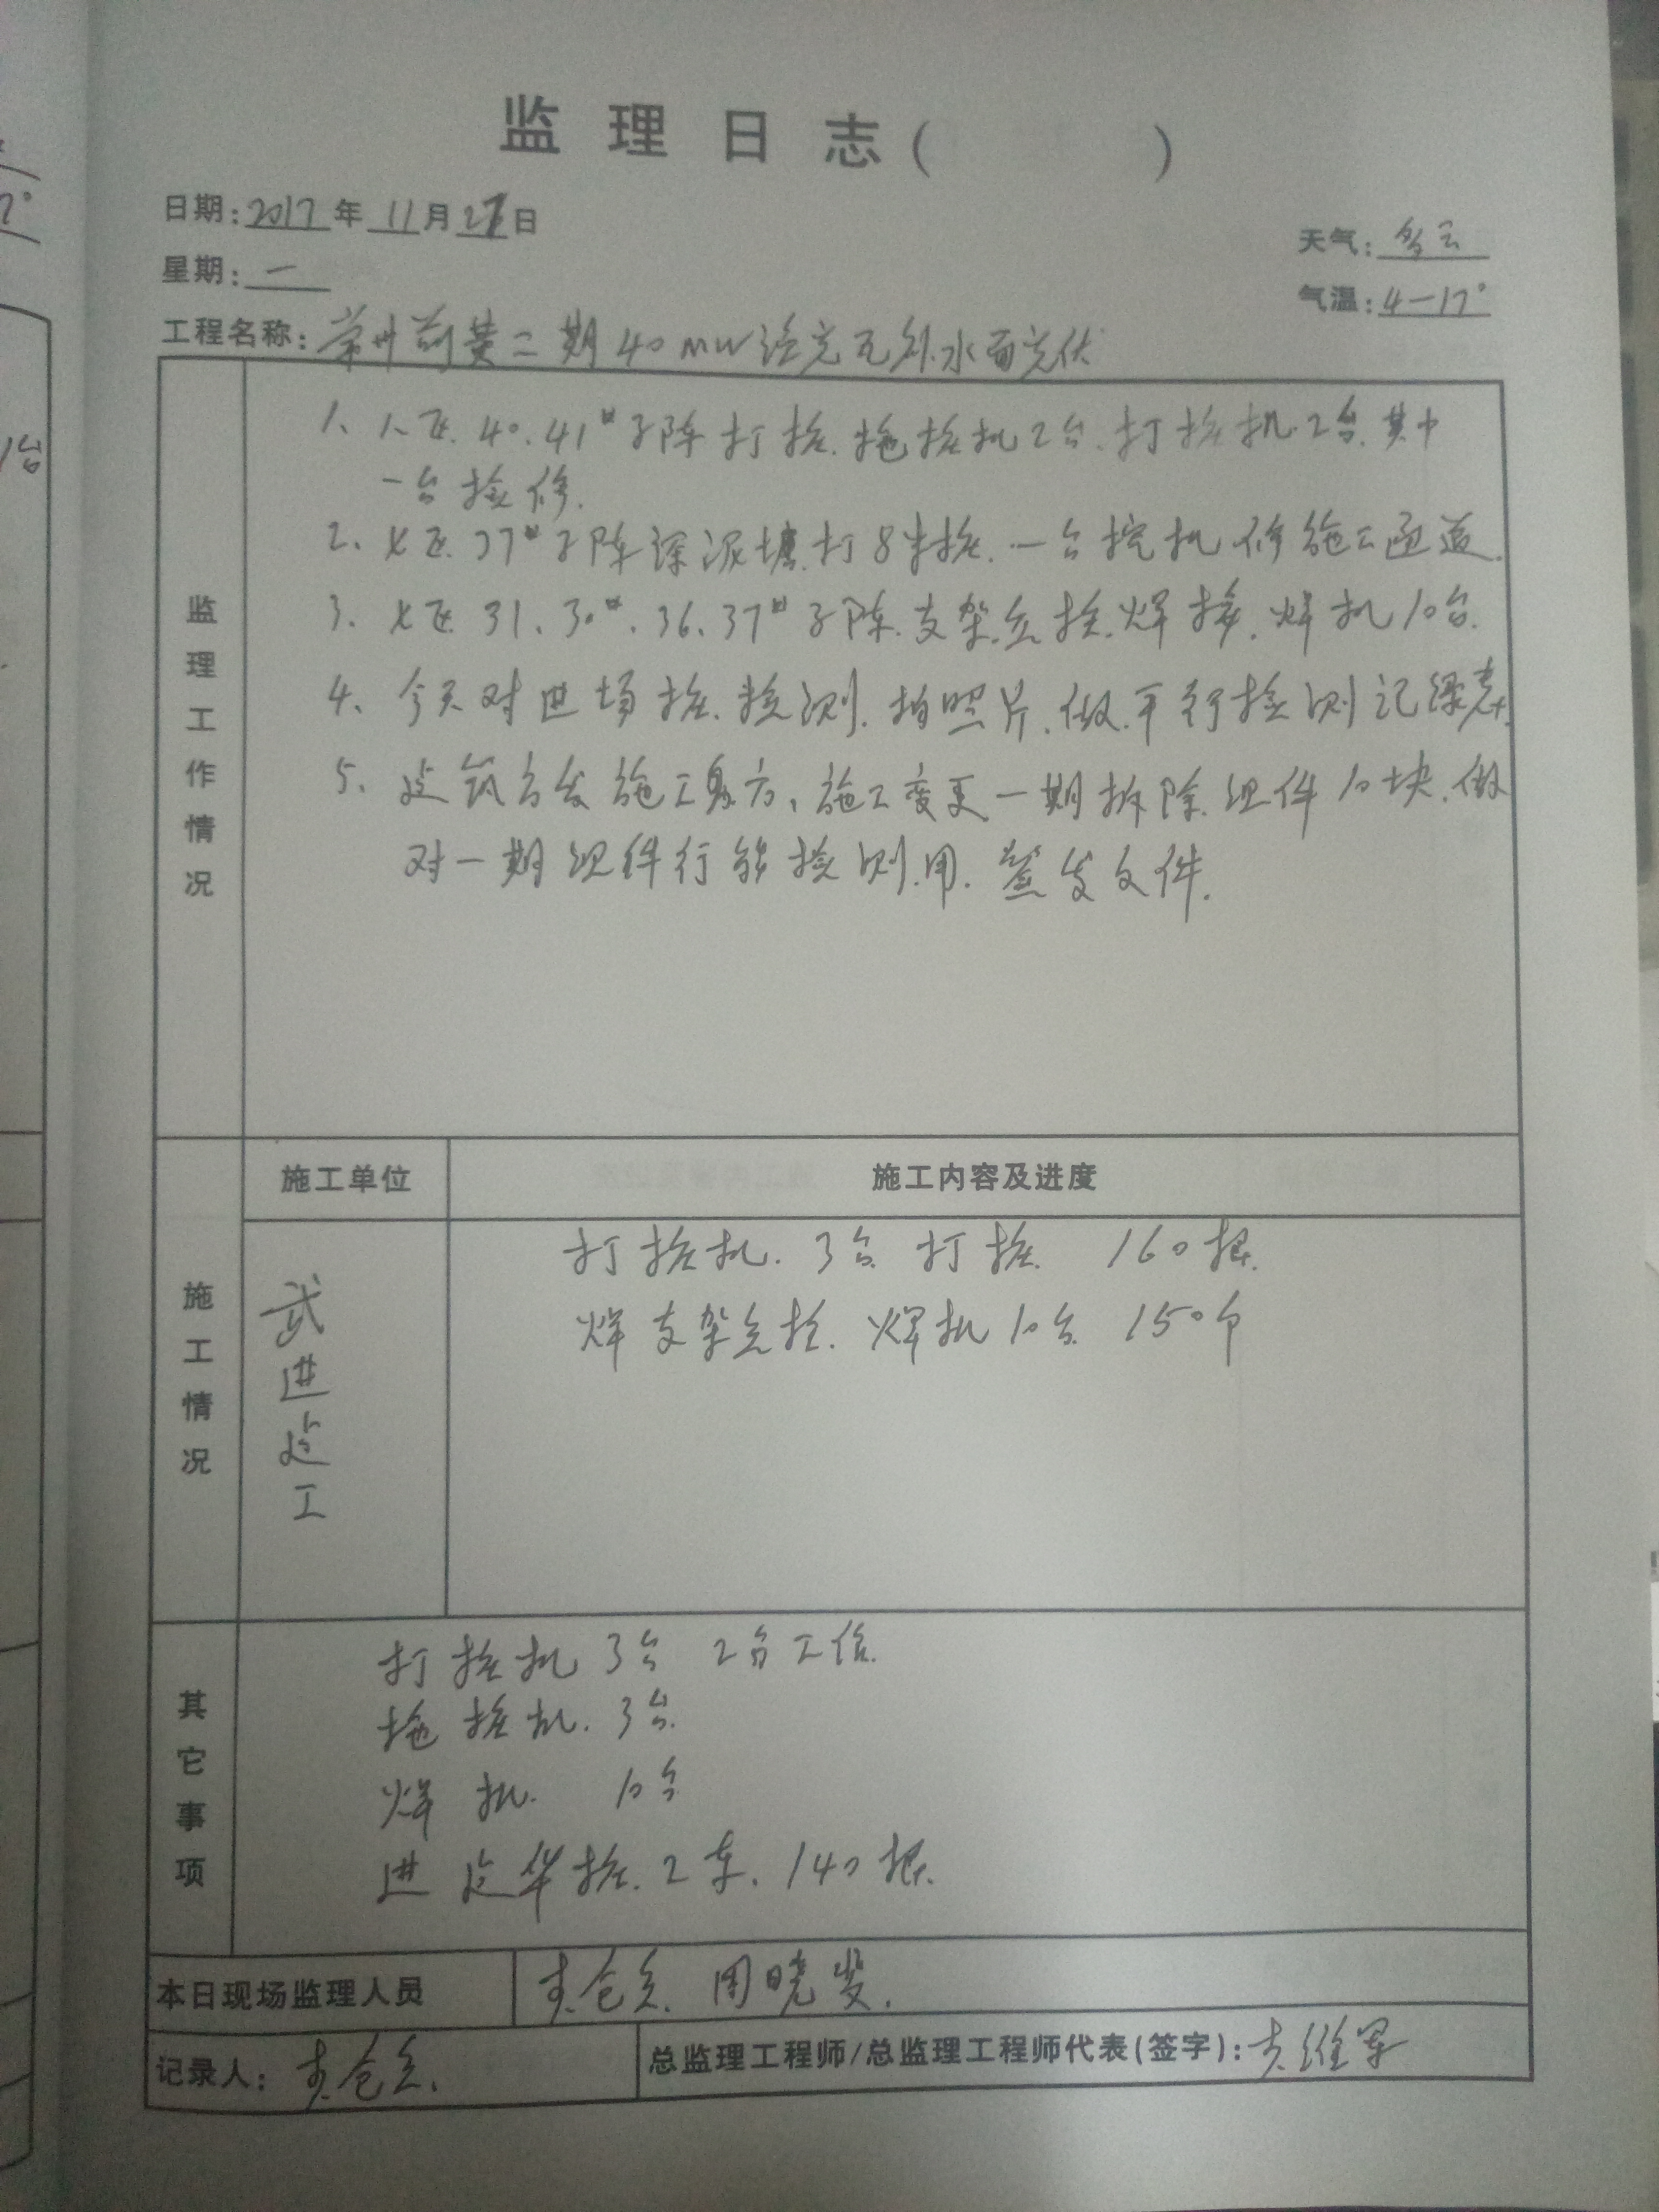 监理日志( )
日期:2017年11月27日
天气:多云
星期:一
气温:4-17°
工程名称:常州前黄二期40MW 水面光伏
监理工作情况
1、 区.40.41#子阵打桩.拖桩机2台.打桩机2台.其中
一台检修.
2、 区.37#子阵深泥塘.打8米桩.一台挖机修施工通道.
3、 区31、30#、36、37#子阵.支架 桩.焊接.焊机10台.
4、今天对进场桩.检测.拍照片.做.平行检测记录表.
5、 施工 方、施工变更一期拆除.组件10块.做
对一期组件行 检测.用.签发文件.
施工情况
施工单位
施工内容及进度
武进建工
打桩机.3台 打桩 160根.
焊支架 桩.焊机10台 150个
其它事项
打桩机 3台 2台工作.
拖桩机.3台.
焊机. 10台
进建华桩.2车.140根.
本日现场监理人员
周晓
记录人:
总监理工程师/总监理工程师代表(签字):
1台